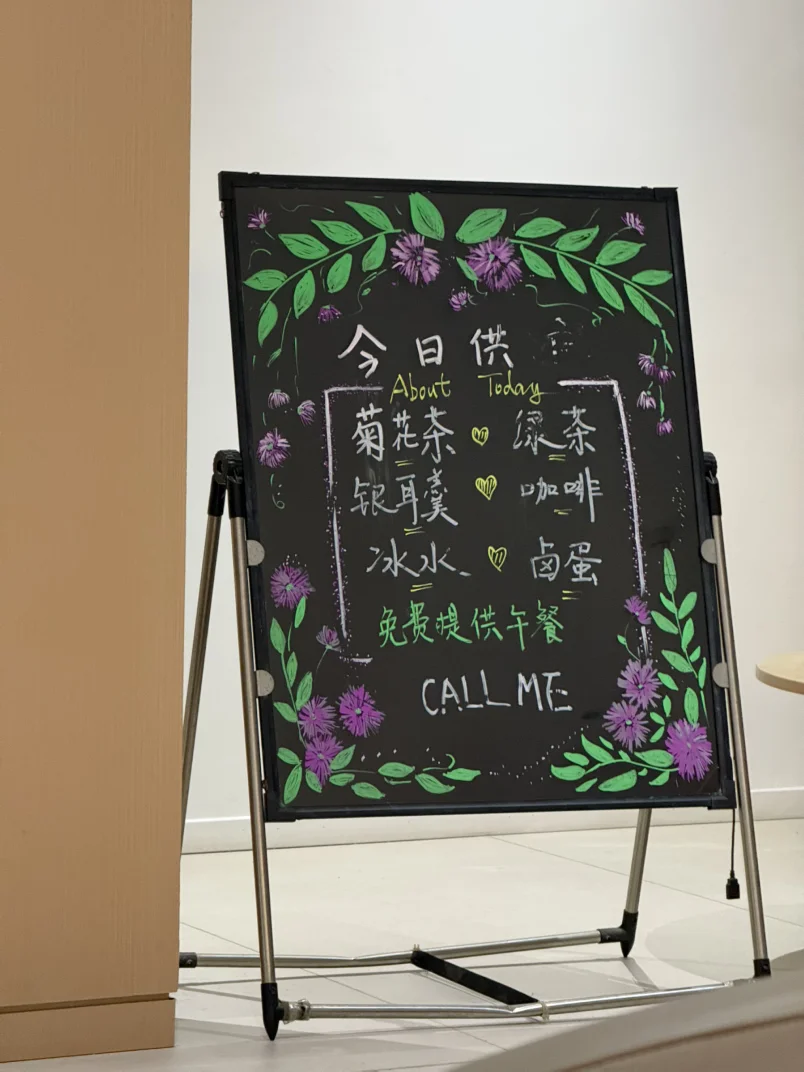 今日供
About Today
菊花茶 绿茶
银耳羹 咖啡
冰水 卤蛋
免费提供午餐
CALL ME